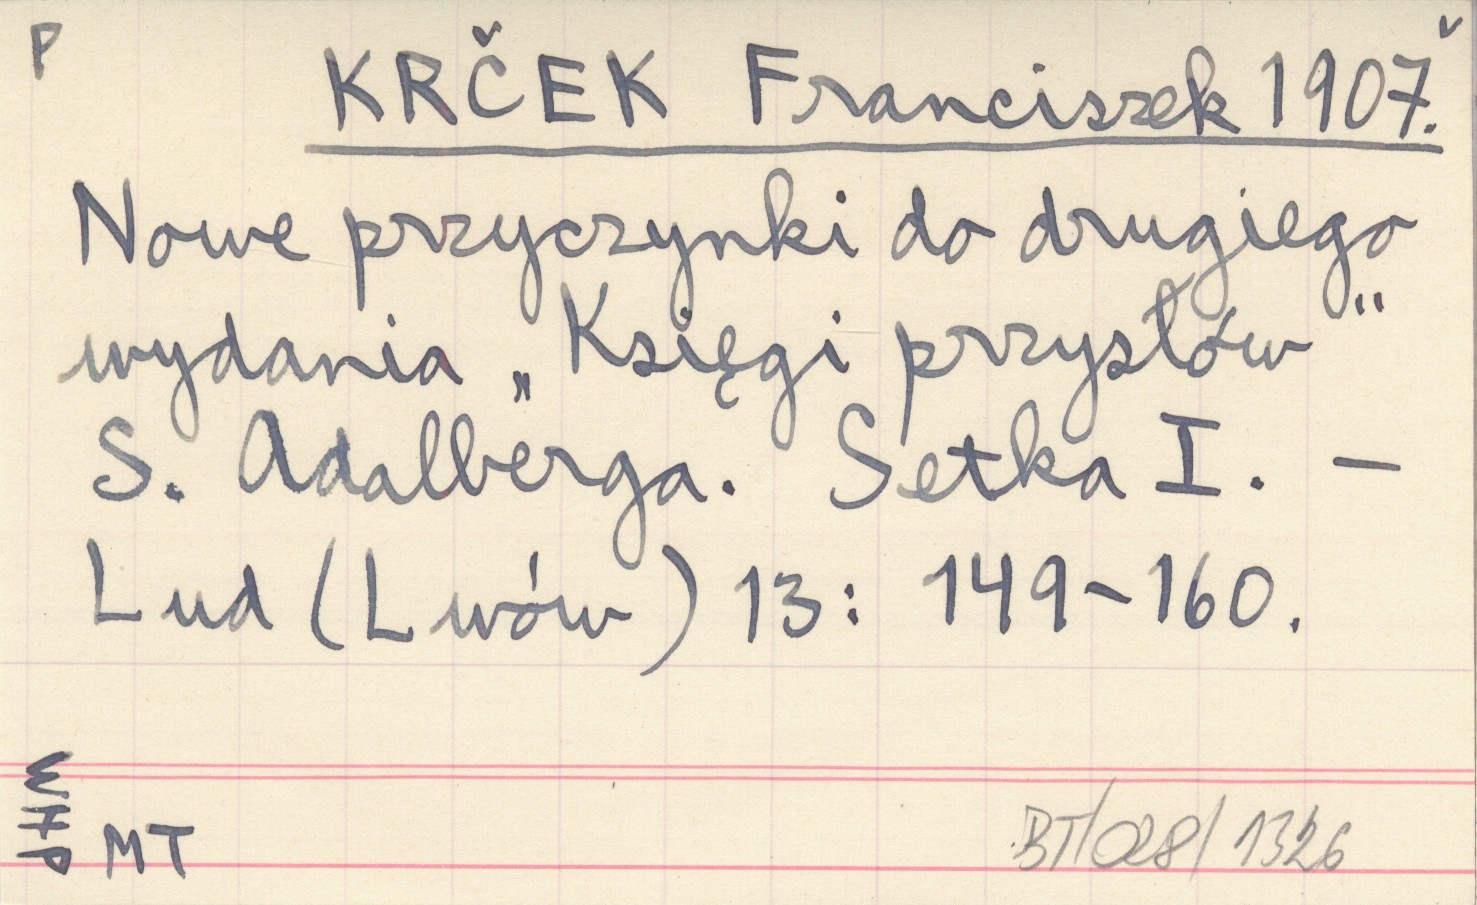 P
KRČEK Franciszek 1907.
Nowe przyczynki do drugiego
wydania „Księgi przysłów”
S. Adalberga. Setka I. —
Lud (Lwów) 13: 149-160.
MT
BT/028/1326